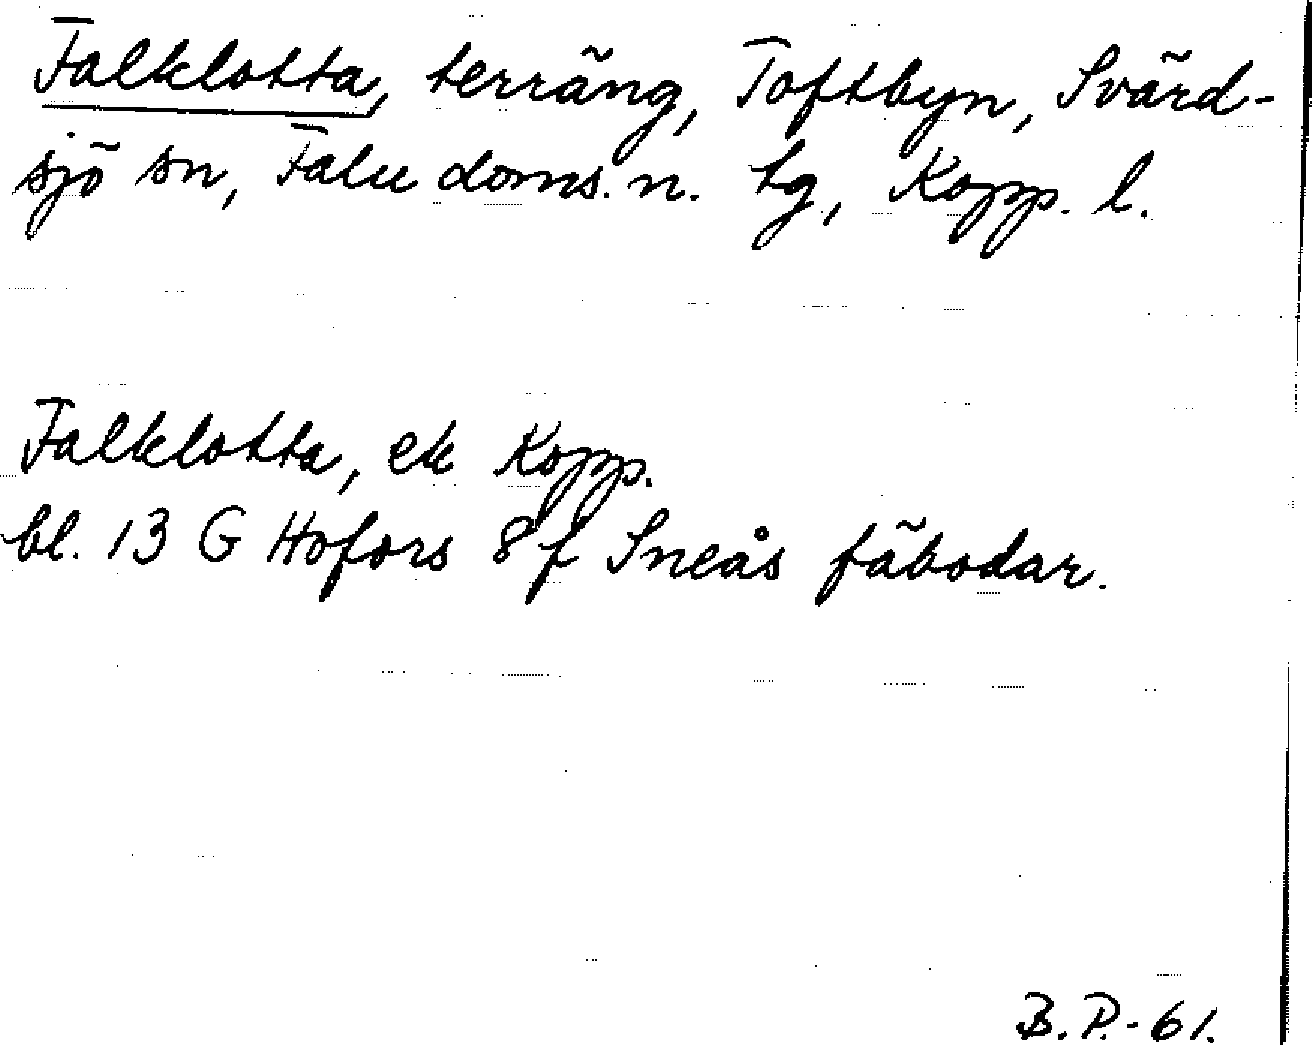 Falklotta, terräng, Toftbyn, Svärd-
sjö sn, Falu doms. n. tg, Kopp. l.
Falklotta, ek Kopp.
bl. 13 G Hofors 8 f Sneås fäbodar.
B.P.-61.